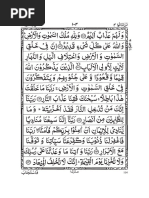 ١٠٣
وَلَهُمْ عَذَابٌ اَلِيْمٌ ۝ وَلِلّٰهِ مُلْكُ السَّمٰوٰتِ وَالْاَرْضِ
وَاللّٰهُ عَلٰى كُلِّ شَيْءٍ قَدِيْرٌ ۝ اِنَّ فِيْ خَلْقِ
السَّمٰوٰتِ وَالْاَرْضِ وَاخْتِلَافِ الَّيْلِ وَالنَّهَارِ
لَاٰيٰتٍ لِّاُولِي الْاَلْبَابِ ۝ الَّذِيْنَ يَذْكُرُوْنَ
اللّٰهَ قِيَامًا وَّقُعُوْدًا وَّعَلٰى جُنُوْبِهِمْ وَيَتَفَكَّرُوْنَ
فِيْ خَلْقِ السَّمٰوٰتِ وَالْاَرْضِ رَبَّنَا مَا خَلَقْتَ
هٰذَا بَاطِلًا سُبْحٰنَكَ فَقِنَا عَذَابَ النَّارِ ۝ رَبَّنَا
اِنَّكَ مَنْ تُدْخِلِ النَّارَ فَقَدْ اَخْزَيْتَهٗ وَمَا لِلظّٰلِمِيْنَ
مِنْ اَنْصَارٍ ۝ رَبَّنَا اِنَّنَا سَمِعْنَا مُنَادِيًا يُّنَادِيْ
لِلْاِيْمَانِ اَنْ اٰمِنُوْا بِرَبِّكُمْ فَاٰمَنَّا رَبَّنَا فَاغْفِرْ لَنَا
ذُنُوْبَنَا وَكَفِّرْ عَنَّا سَيِّاٰتِنَا وَتَوَفَّنَا مَعَ الْاَبْرَارِ ۝
رَبَّنَا وَاٰتِنَا مَا وَعَدْتَّنَا عَلٰى رُسُلِكَ وَلَا تُخْزِنَا
يَوْمَ الْقِيٰمَةِ اِنَّكَ لَا تُخْلِفُ الْمِيْعَادَ ۝